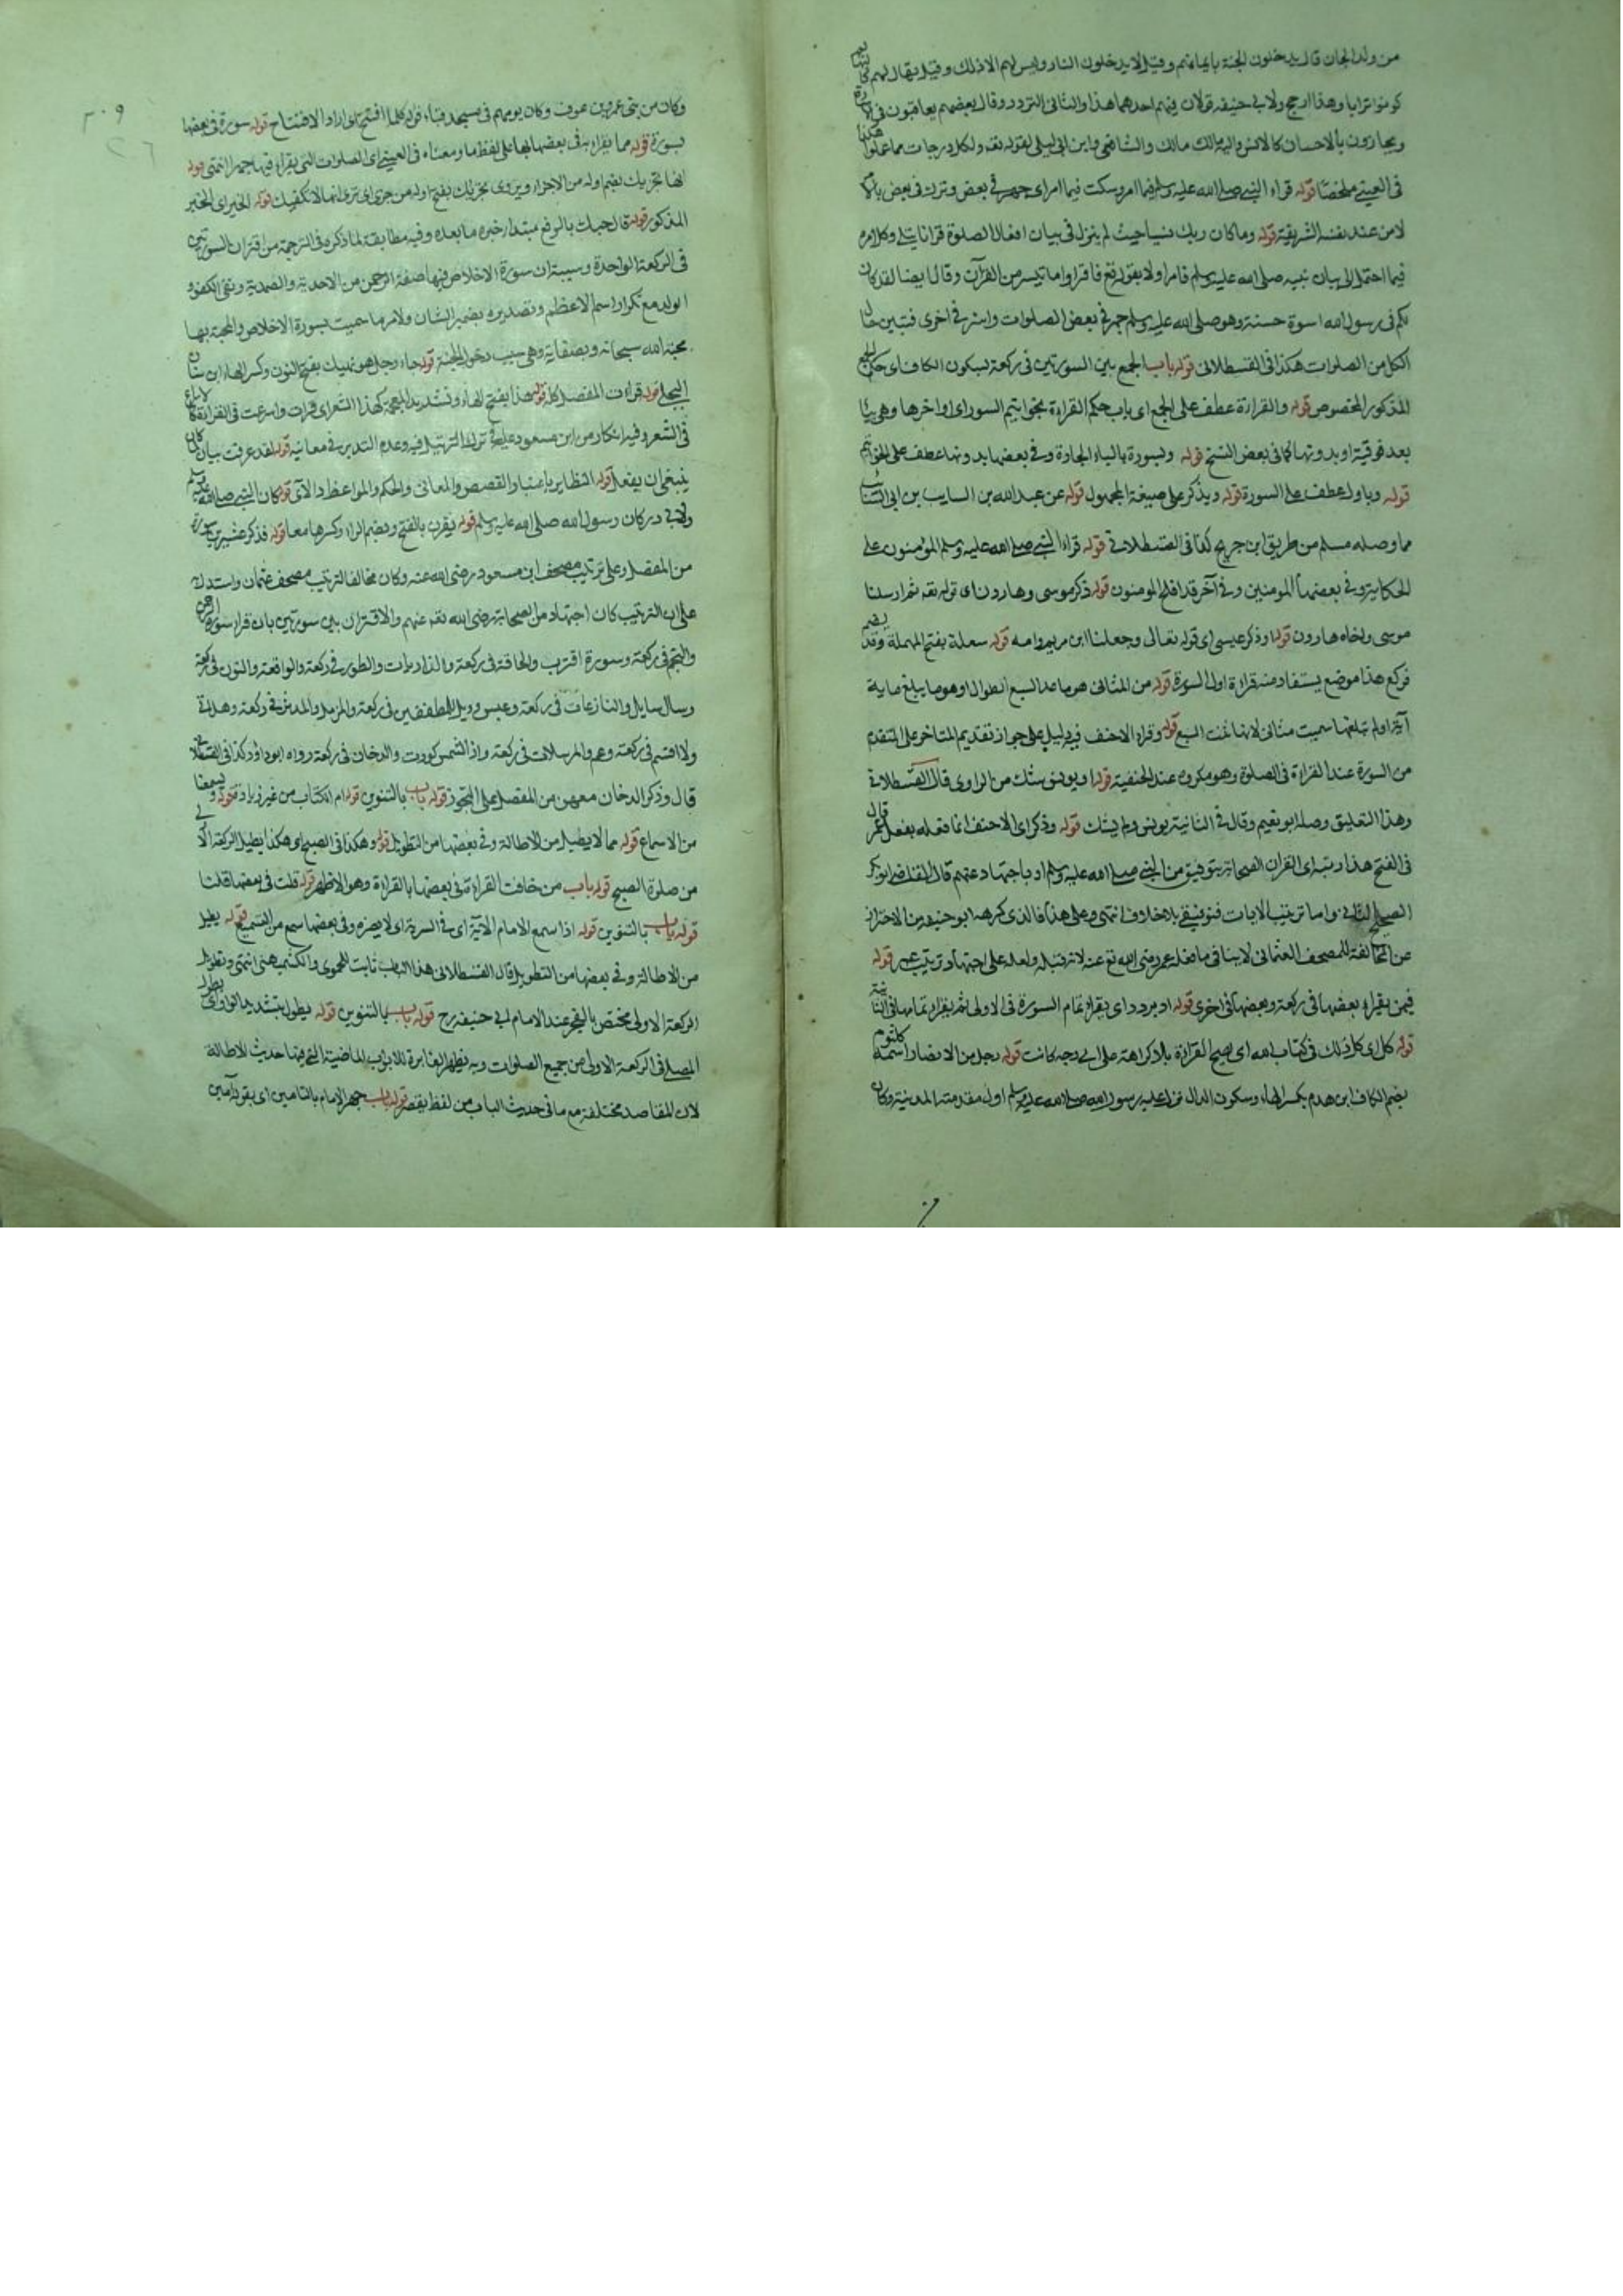 من ولد الجان قال يدخلون الجنة بايمانهم وقيل لا يدخلون النار وليس لهم الا ذلك وقيل يقال لهم
كونوا ترابا وهذا ارجح ولابي حنيفه قولان فيهم احدهما هذا والثاني التردد وقال بعضهم يعاقبون في
ويجازون بالاحسان كالانس واليه مالك والشافعي وابن ابي ليلى لقوله تعه ولكل درجات مما عملوا هكذا
في العيني ملخصا قوله قراء النبي صلى الله عليه وسلم فيما امر وسكت فيما امر اي جهر في بعض وترك في بعض
لا من عند نفسه الشريفة قوله وما كان ربك نسيا حيث لم ينزل في بيان افعال الصلوة قرانا يتلى وكل امره
فيما احتمل الى بيان نبيه صلى الله عليه وسلم قامرا ولا بقوله تع فاقراوا ما تيسر من القرآن وقال ايضا لقد كان
لكم في رسول الله اسوة حسنة وهو صلى الله عليه وسلم جهر في بعض الصلوات واسر في اخرى فتبين حال
الكل من الصلوات هكذا في القسطلاني قوله باب الجمع بين السورتين في ركعة بسكون الكاف اي حكم الجمع
المذكور المخصوص قوله والقراءة عطف على الجمع اي باب حكم القراءة بخواتيم السور اي اواخرها وهي بيا
بعد فوقية او بدونها كما في بعض النسخ قوله وبسورة بالباء الجارة وفي بعضها بدونها عطف على الخواتم
قوله وباول عطف على السورة قوله ويذكر على صيغة المجهول قوله عن عبد الله بن السايب بن ابي السائب
مما وصله مسلم من طريق ابن جريج كذا في القسطلاني قوله قراء النبي صلى الله عليه وسلم المؤمنون على
الحكاية وفي بعضها المومنين وفي آخر قد افلح المومنون قوله ذكر موسى وهارون اي قوله تعه ثم ارسلنا
موسى واخاه هارون قوله او ذكر عيسى اي قوله تعالى وجعلنا ابن مريم وامه قوله سعلة بفتح المهملة وقد يضم
فركع هذا موضع يستفاد منه قراءة اول السورة قوله من المثاني هو ما عدا السبع الطوال او هو ما يبلغ ماية
آية او لم يبلغها سميت مثاني لانها ثنت السبع قوله وقراء الاحنف فيه دليل على جواز تقديم المتاخر على المتقدم
من السورة عند القراءة في الصلوة وهو مكروه عند الحنفية قوله او يونس شك من الراوي قال القسطلاني
وهذا التعليق وصله ابو نعيم وقال في الثانية يونس ولم يشك قوله وذكر اي الاحنف انما فعله بفعل عمر قال
في الفتح هذا رتبه اي القران الصحابة بتوفيق من النبي صلى الله عليه وسلم او باجتهاد عنهم قال القاضي ابو بكر
الصحيح الثاني واما ترتيب الايات فتوقيفي بلا خلاف انتهى وعلى هذا فالذي كرهه ابو حنيفه من الاحتراز
عن المخالفة للمصحف العثماني لا ينافي ما فعله عمر رضي الله تع عنه لانه قبله ولعله على اجتهاد ترتيب عمر قوله
فيمن يقراء بعضها في ركعة وبعضها في اخرى قوله او يردد اي يقراء تمام السورة في الاولى ثم يقراء تمامها في الثانية
قوله كل اي كل ذلك في كتاب الله اي يصح القراءة بلا كراهة على اي وجه كانت قوله رجل من الانصار اسمه كلثوم
بضم الكاف ابن هدم بكسر الهاء وسكون الدال نزل عليه رسول الله صلى الله عليه وسلم اول مقدمته المدينة وكان
٢٠٩
٢٦
وكان من بني عمرو بن عوف وكان يومهم في مسجد قباء قوله كلما افتتح اي اراد الافتتاح قوله سورة في بعضها
بسورة قوله مما يقراء به في بعضها لها على لفظ ما ومعناه في العيني اي الصلوات التي يقراء فيها جهرا انتهى قوله
انها تجزيك بضم اوله من الاجزاء ويروى تجزيك بفتح اوله من جزى اي ترى انها لا تكفيك قوله الخبر اي الخبر
المذكور قوله قال حبك بالرفع مبتداء خبره ما بعده وفيه مطابقة لما ذكره في الترجمة من اقتران السورتين
في الركعة الواحدة وسببه ان سورة الاخلاص فيها صفة الرحمن من الاحدية والصمدية ونفي الكفو و
الولد مع تكرار اسم الاعظم وتصديره بضمير الشان ولامر ما سميت بسورة الاخلاص والمحبة بها
محبة الله سبحانه وبصفاته وهي سبب دخول الجنة قوله جاء رجل هو نهيك بفتح النون وكسر الهاء ابن سنان
البجلي قوله قراءت المفصل كله قوله هذا بفتح الهاء وتشديد المعجمة كهذا الشعر اي قرات واسرعت في القراءة
في الشعر وفيه انكار من ابن مسعود عليه في ترك الترتيل فيه وعدم التدبر في معانيه قوله لقد عرفت بيان كان
ينبغي ان يفعل قوله النظاير باعتبار القصص والمعاني والحكم والمواعظ والآي قوله كان النبي صلى الله عليه وسلم
ولابي ذر كان رسول الله صلى الله عليه وسلم قوله يقرن بالفتح وبضم الراء وكسرها معا قوله فذكر عشرين سورة
من المفصل وعلى ترتيب مصحف ابن مسعود رضي الله عنه وكان مخالفا لترتيب مصحف عثمان واستدل به
على ان الترتيب كان اجتهاد من الصحابة رضي الله تعه عنهم والاقتران بين سورتين بان قراء سورة الرحمن
والنجم في ركعة وسورة اقترب والحاقة في ركعة والذاريات والطور في ركعة والواقعة والنون في ركعة
وسال سايل والنازعات في ركعة وعبس وويل للمطففين في ركعة والمزمل والمدثر في ركعة وهل اتى
ولا اقسم في ركعة وعم والمرسلات في ركعة واذا الشمس كورت والدخان في ركعة رواه ابو داؤد كذا في القسطلا
قال وذكر الدخان معهن من المفصل على التجوز قوله باب بالتنوين قوله ام الكتاب من غير زيادة قوله ويسمعنا
من الاسماع قوله مما لا يطيل من الاطالة وفي بعضها من التطويل قوله وهكذا في الصبح اي هكذا يطيل الركعة الاولى
من صلوة الصبح قوله باب من خافت القراءة في بعضها بالقراءة وهو الاظهر قوله قلت في بعضها قلنا
قوله باب بالتنوين قوله اذا سمع الامام الآية اي في السرية اي لا يضره وفي بعضها سمع من التسميع قوله يطيل
من الاطالة وفي بعضها من التطويل قال القسطلاني هذا الباب ثابت للحموي والكشميهني انتهى وتطويل
الركعة الاولى مختص بالفجر عند الامام ابي حنيفه رح قوله باب بالتنوين قوله يطول بتشديد الواو اي يطول
المصلي في الركعة الاولى من جميع الصلوات وبه يظهر المغايرة للابواب الماضية التي فيها حديث الاطالة
لان المقاصد مختلفة مع ما في حديث الباب من لفظ يقصر قوله باب جهر الامام بالتامين اي بقول آمين